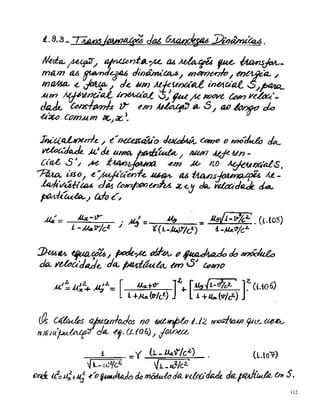 1.8.3 - Transformações das Grandezas Dinâmicas.
Nesta seção, apresenta-se as relações que transfor-
mam as grandezas dinâmicas, momento, energia,
massa e força, de um referencial inercial S, para
um referencial inercial S', que se move com veloci-
dade constante v em relação a S, ao longo do
eixo comum x, x'.
Inicialmente, é necessário descobrir como o módulo da
velocidade u' de uma partícula, num referen-
cial S', se transforma em u no referencial S.
Para isso, é suficiente usar as transformações re-
lativísticas das componentes x e y da velocidade da
partícula, isto é,
u'x = (ux - v)/(1 - ux v/c²) ; u'y = uy/(γ(1 - ux v/c²)) = uy√(1 - v²/c²)/(1 - ux v/c²) . (1.105)
Dessas equações, pode-se obter o quadrado do módulo
da velocidade da partícula em S' como
u'² = u'x² + u'y² = [(ux + v)/(1 + ux(v/c²))]² + [uy√(1 - v²/c²)/(1 + ux(v/c²))]² . (1.106)
Os cálculos apresentados no exemplo 1.12 mostram que uma
manipulação da eq. (1.106), fornece
1/√(1 - u'²/c²) = γ (1 - ux v/c²)/√(1 - u²/c²) . (1.107)
onde u² = ux² + uy² é o quadrado do módulo da velocidade da partícula em S.
112